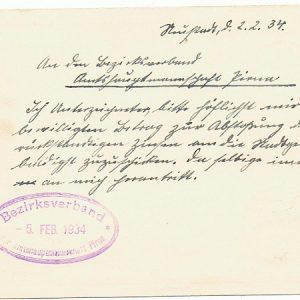 Neustadt, d. 2.2.34.
An den Bezirksverband
Amtshauptmannschaft Pirna
Ich Unterzeichneter, bitte höflichst mir
bewilligten Betrag zur Abstoßung d
rückständigen Zinsen an die Stadtge
baldigst zuzuschicken. Da selbige im
an mich herantritt.
Bezirksverband
- 5. FEB. 1934
Pirna